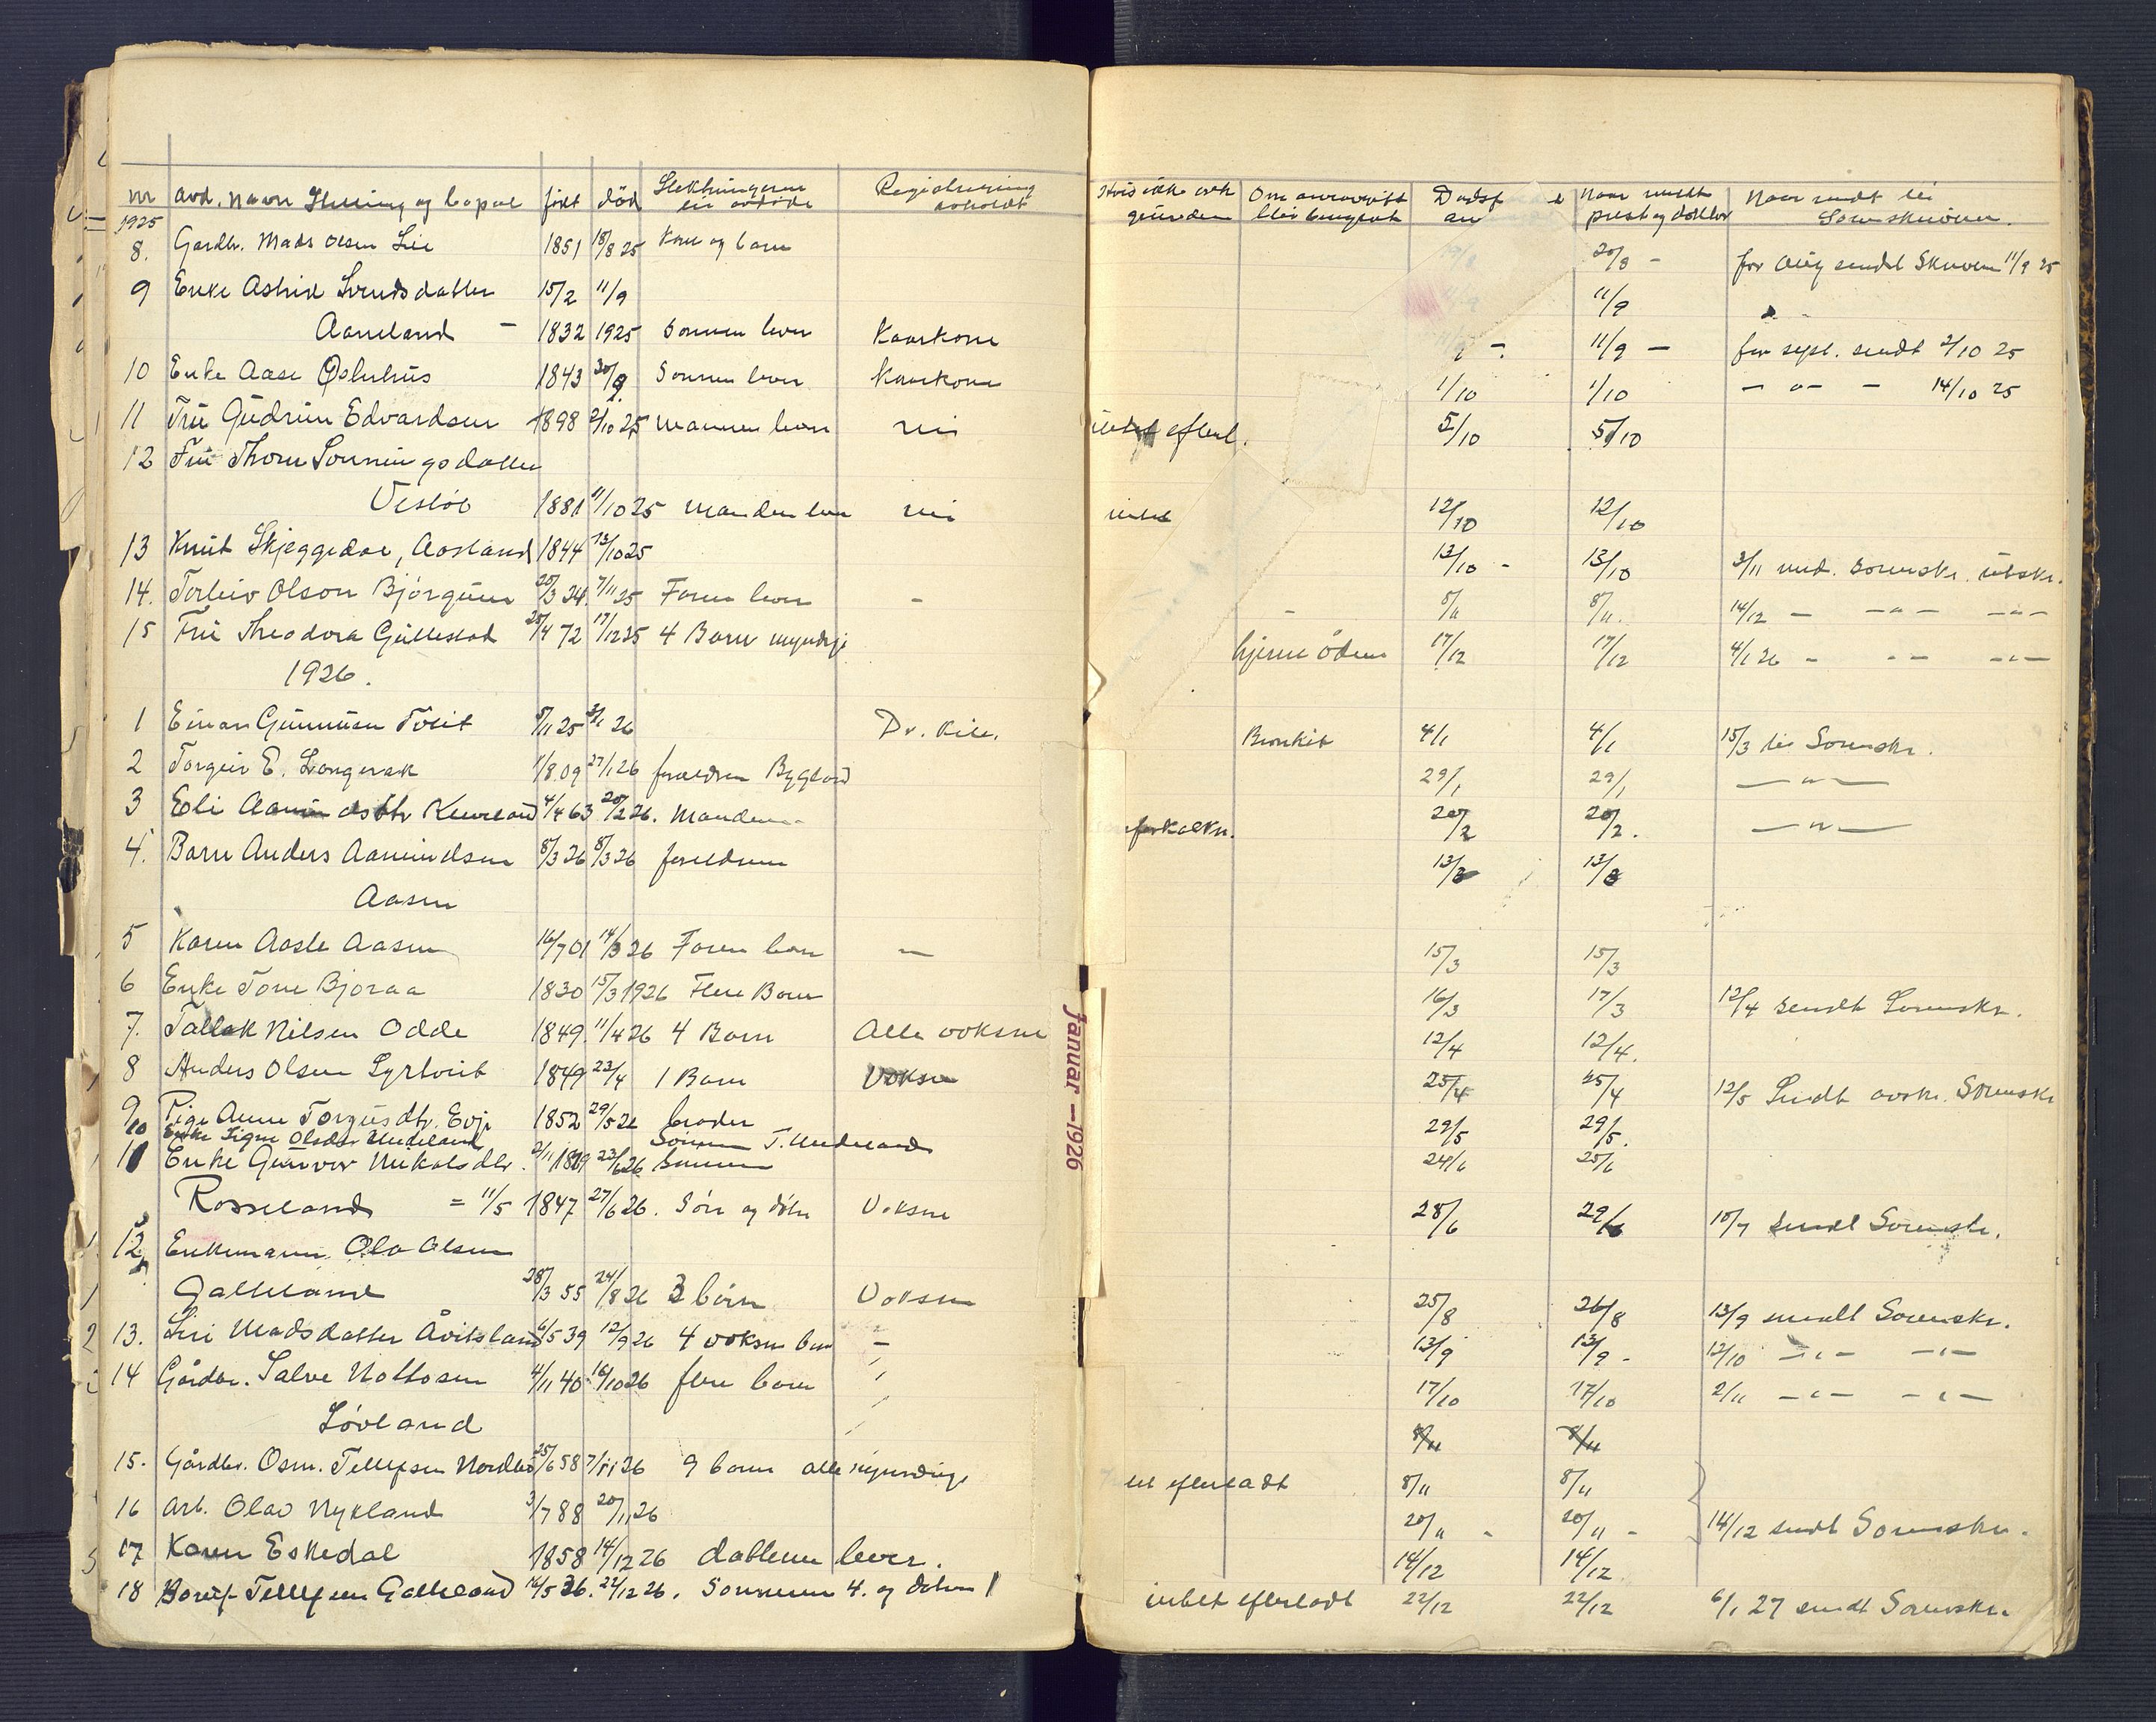 nr avd. navn Stilling og bopæl født død Slektningerne til avdøde Registrering avholdt Hvis ikke grunden Om blev Dødsf Naar sendt prest og doktor Naar sendt til Sorenskriver.
1925
8. Gardbr. Mads Olsen Lie 1851 18/8 25 Kone og barn 20/8 - for Aug sendt Skriveren 11/9 25
9 Enke Astrid Svendsdatter 15/2 11/9 11/9
Aaneland - 1832 1925 Sønnen lever Kaarkone 11/9 - for sept. sendt 2/10 25
10 Enke Aase Øslenhus 1843 30/9 Sønnen lever Kaarkone 1/10 1/10 - " - - 14/10 25
11 Fru Gudrun Edvardsen 1898 2/10 25 mannen lever nei intet efterl. 5/10 5/10
12 Fru Thone Sønningsdatter
Vesløe 1881 11/10 25 manden lever nei intet 12/10 12/10
13 Knut Skjeggedal, Aasland 1844 13/10 25 13/10 - 13/10 3/11 med. Sorenskr. utskr.
14. Torleiv Olson Bjørgum 20/3 24 7/11 25 Faren lever - - 8/11 8/11. 14/12 - - " - - " -
15 Fru Theodora Gullestad 25/4 72 17/12 25 4 Barn myndige hjerne ødem 17/12 17/12 4/1 26 - - - - " -
1926.
1 Einar Gunnusen Tveit 8/11 25 3/1 26 Dr. Kile. Bronkit 4/1 4/1 15/3 til Sorenskr.
2 Torgeir E. Longerak 1/8 09 27/1 26 forældren Bygland 29/1 29/1 - " -
3 Eli Aamundsdtr Kurland 4/4 63 20/2 26. Manden - forkalkn. 20/2 20/2. - " -
4. Barn Anders Aamundsen 8/3 26 8/3 26 foreldrene 13/3 13/3
Aasen
5 Karen Aasle Aasen 16/7 01 14/3 26 Faren lever - 15/3 15/3
6 Enke Tone Bjoraa 1830 15/3 1926 Flere Barn 16/3 17/3 12/4 sendt Sorenskr.
7. Tallak Nilsen Odde 1849. 11/4 26 4 Barn Alle voksne 12/4 12/4.
8 Anders Olsen Syrtveit 1849 23/4 1 Barn Voksen 25/4 25/4 12/5 Sendt avskr. Sorenskr
9 Pige Anne Torgusdtr. Evje 1852 29/5 26 broder 29/5 29/5.
10 Enke Signe Olsdtr Undeland Sønnen T. Undeland
11 Enke Gunvor Nikolsdtr. 2/11 1839 23/6 26 Sønnen 24/6 25/6
Rosseland = 11/5 1847 27/6 26. Søn og dotter Voksne 28/6 29/6 10/7 sendt Sorenskr.
12 Enkemann Ola Olsen
Galteland 28/3 55 24/8 26 3 børn Voksen 25/8 26/8 13/9 sendt Sorenskr.
13. Siri Madsdatter Åvitsland 6/5 39 12/9 26 4 voksne barn - 13/9 13/9 - 12/10 - " - - " -
14 Gårdbr. Salve Nottosen 4/11 40 16/10 26 flere barn " 17/10 17/10 2/11 - " - - " -
Løvland 8/11 8/11
15. Gårdbr. Osm. Tellefsen Nordbø 25/6 58 7/11 26 9 barn alle myndige efterladt 8/11 8/11
16 Arb. Olav Nykland 3/7 88 20/11 26 20/11 - 20/11 - 14/12 sendt Sorenskr.
17 Karen Eskedal 1858 14/12 26 datteren lever. 14/12 14/12
18 Tellefsen Galteland 16/5 36. 22/12 26. Sønnene 4. og datter 1 intet efterladt 22/12 22/12 6/1 27 sendt Sorenskr.
Januar - 1926